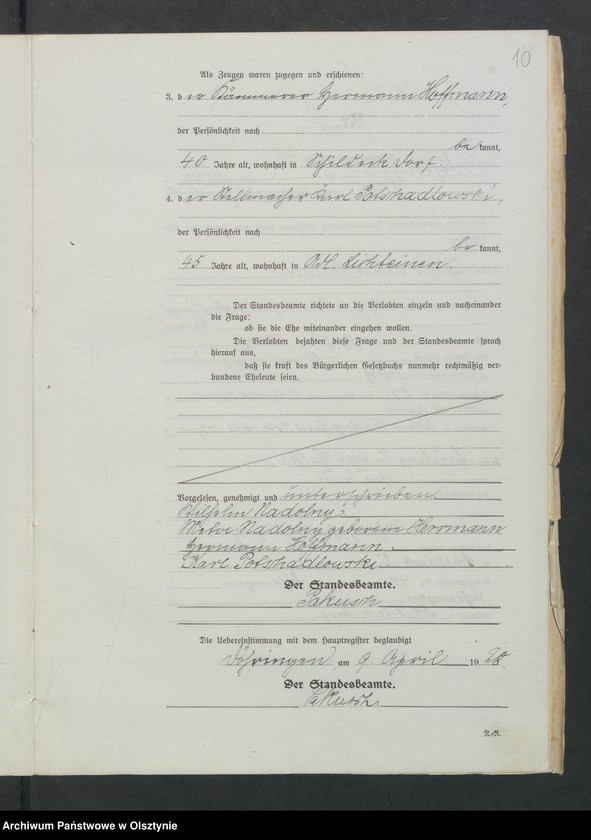 10
Als Zeugen waren zugegen und erschienen:
3. der Kämmerer Hermann Hoffmann,
der Persönlichkeit nach
bekannt,
40 Jahre alt, wohnhaft in Schildeck Dorf.
4. der Stellmacher Karl Potshadlowski,
der Persönlichkeit nach
bekannt,
45 Jahre alt, wohnhaft in Adl. Lichteinen.
Der Standesbeamte richtete an die Verlobten einzeln und nacheinander
die Frage:
ob sie die Ehe miteinander eingehen wollen.
Die Verlobten bejahten diese Frage und der Standesbeamte sprach
hierauf aus,
daß sie kraft des Bürgerlichen Gesetzbuchs nunmehr rechtmäßig ver-
bundene Eheleute seien.
Vorgelesen, genehmigt und unterschrieben
Wilhelm Nadolny
Nadolny geborene Herrmann
Hermann Hoffmann.
Karl Potshadlowski.
Der Standesbeamte.
Sakusch
Die Uebereinstimmung mit dem Hauptregister beglaubigt
Döhringen am 9. April 1928.
Der Standesbeamte.
Sakusch
N.N.
Archiwum Państwowe w Olsztynie